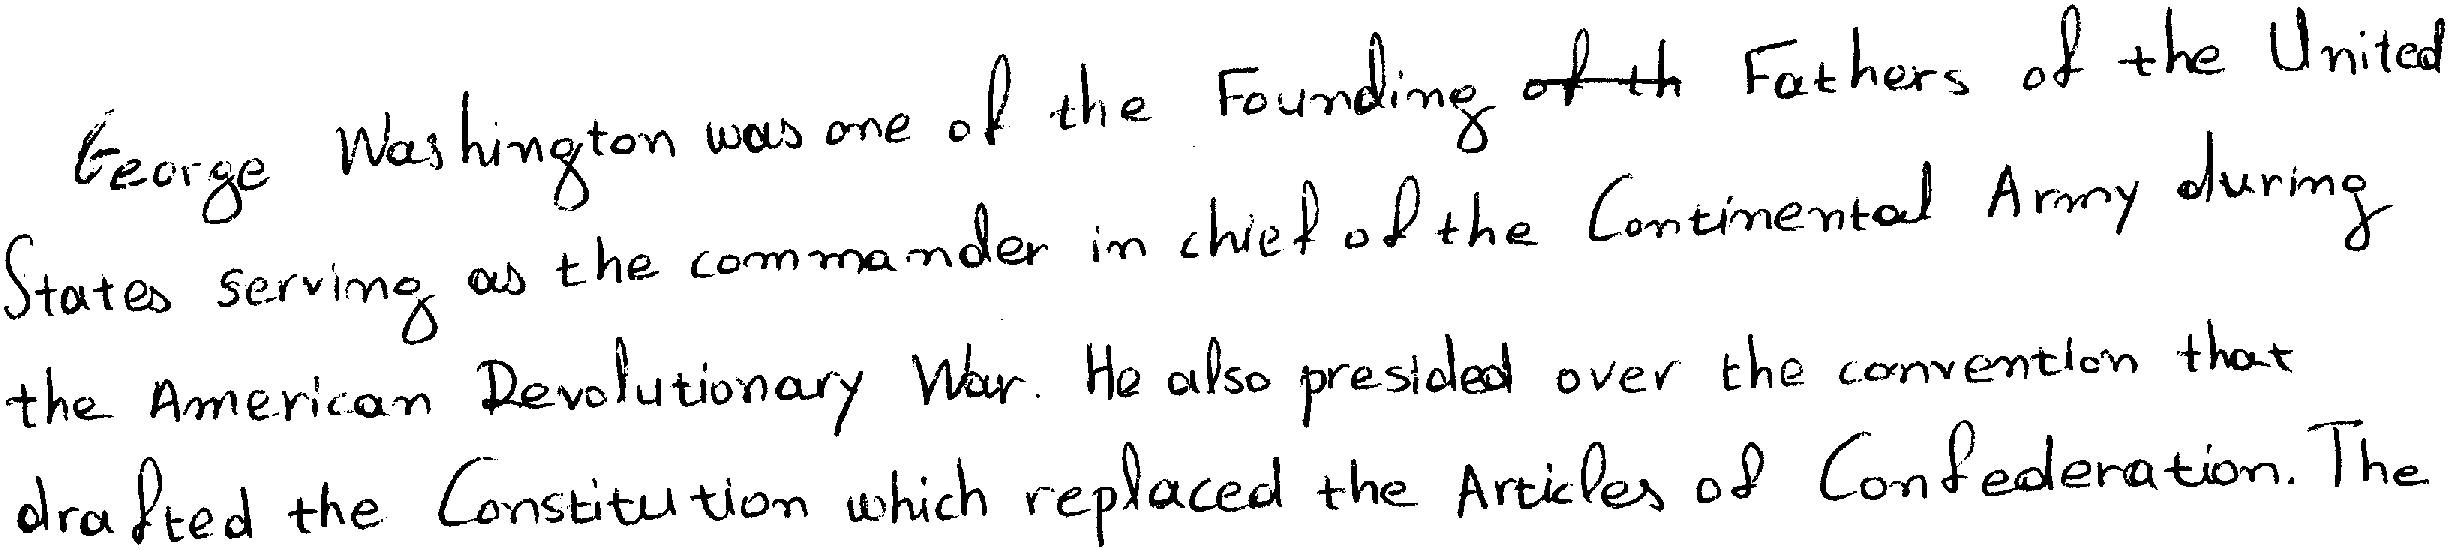 George Washington was one of the Founding of th Fathers of the United
States serving as the commander in chief of the Continental Army during
the American Revolutionary War. He also presided over the convention that
drafted the Constitution which replaced the Articles of Confederation. The